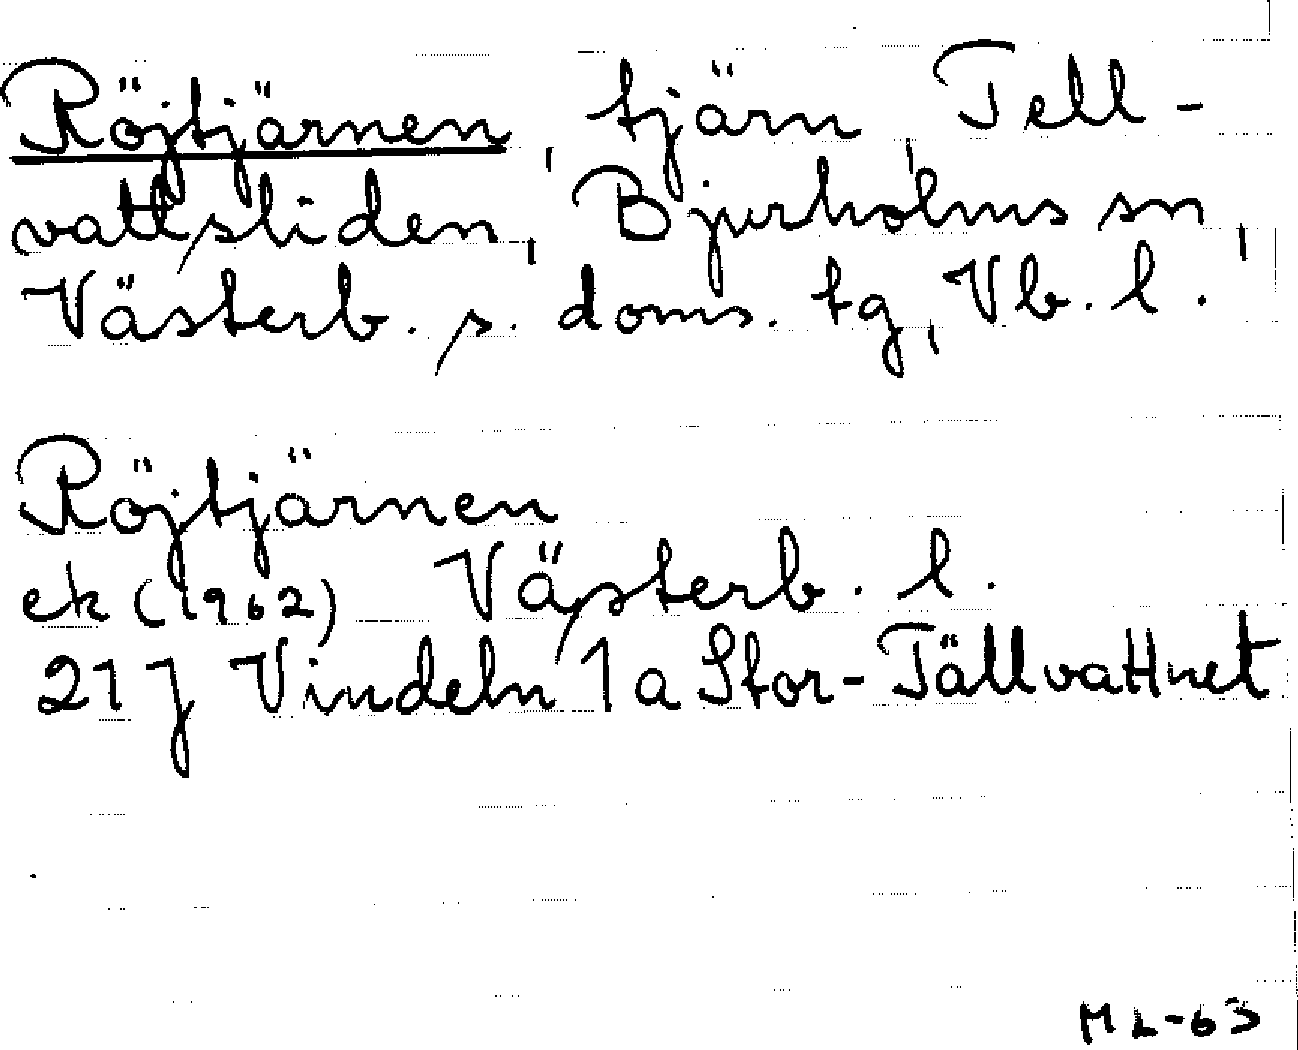 Röjtjärnen, tjärn, Tell-
vattsliden, Bjurholms sn,
Västerb. s. doms. tg, Vb. l.
Röjtjärnen
ek (1962) Västerb. l.
21 J Vindeln 1 a Stor-Tällvattnet
ML-63